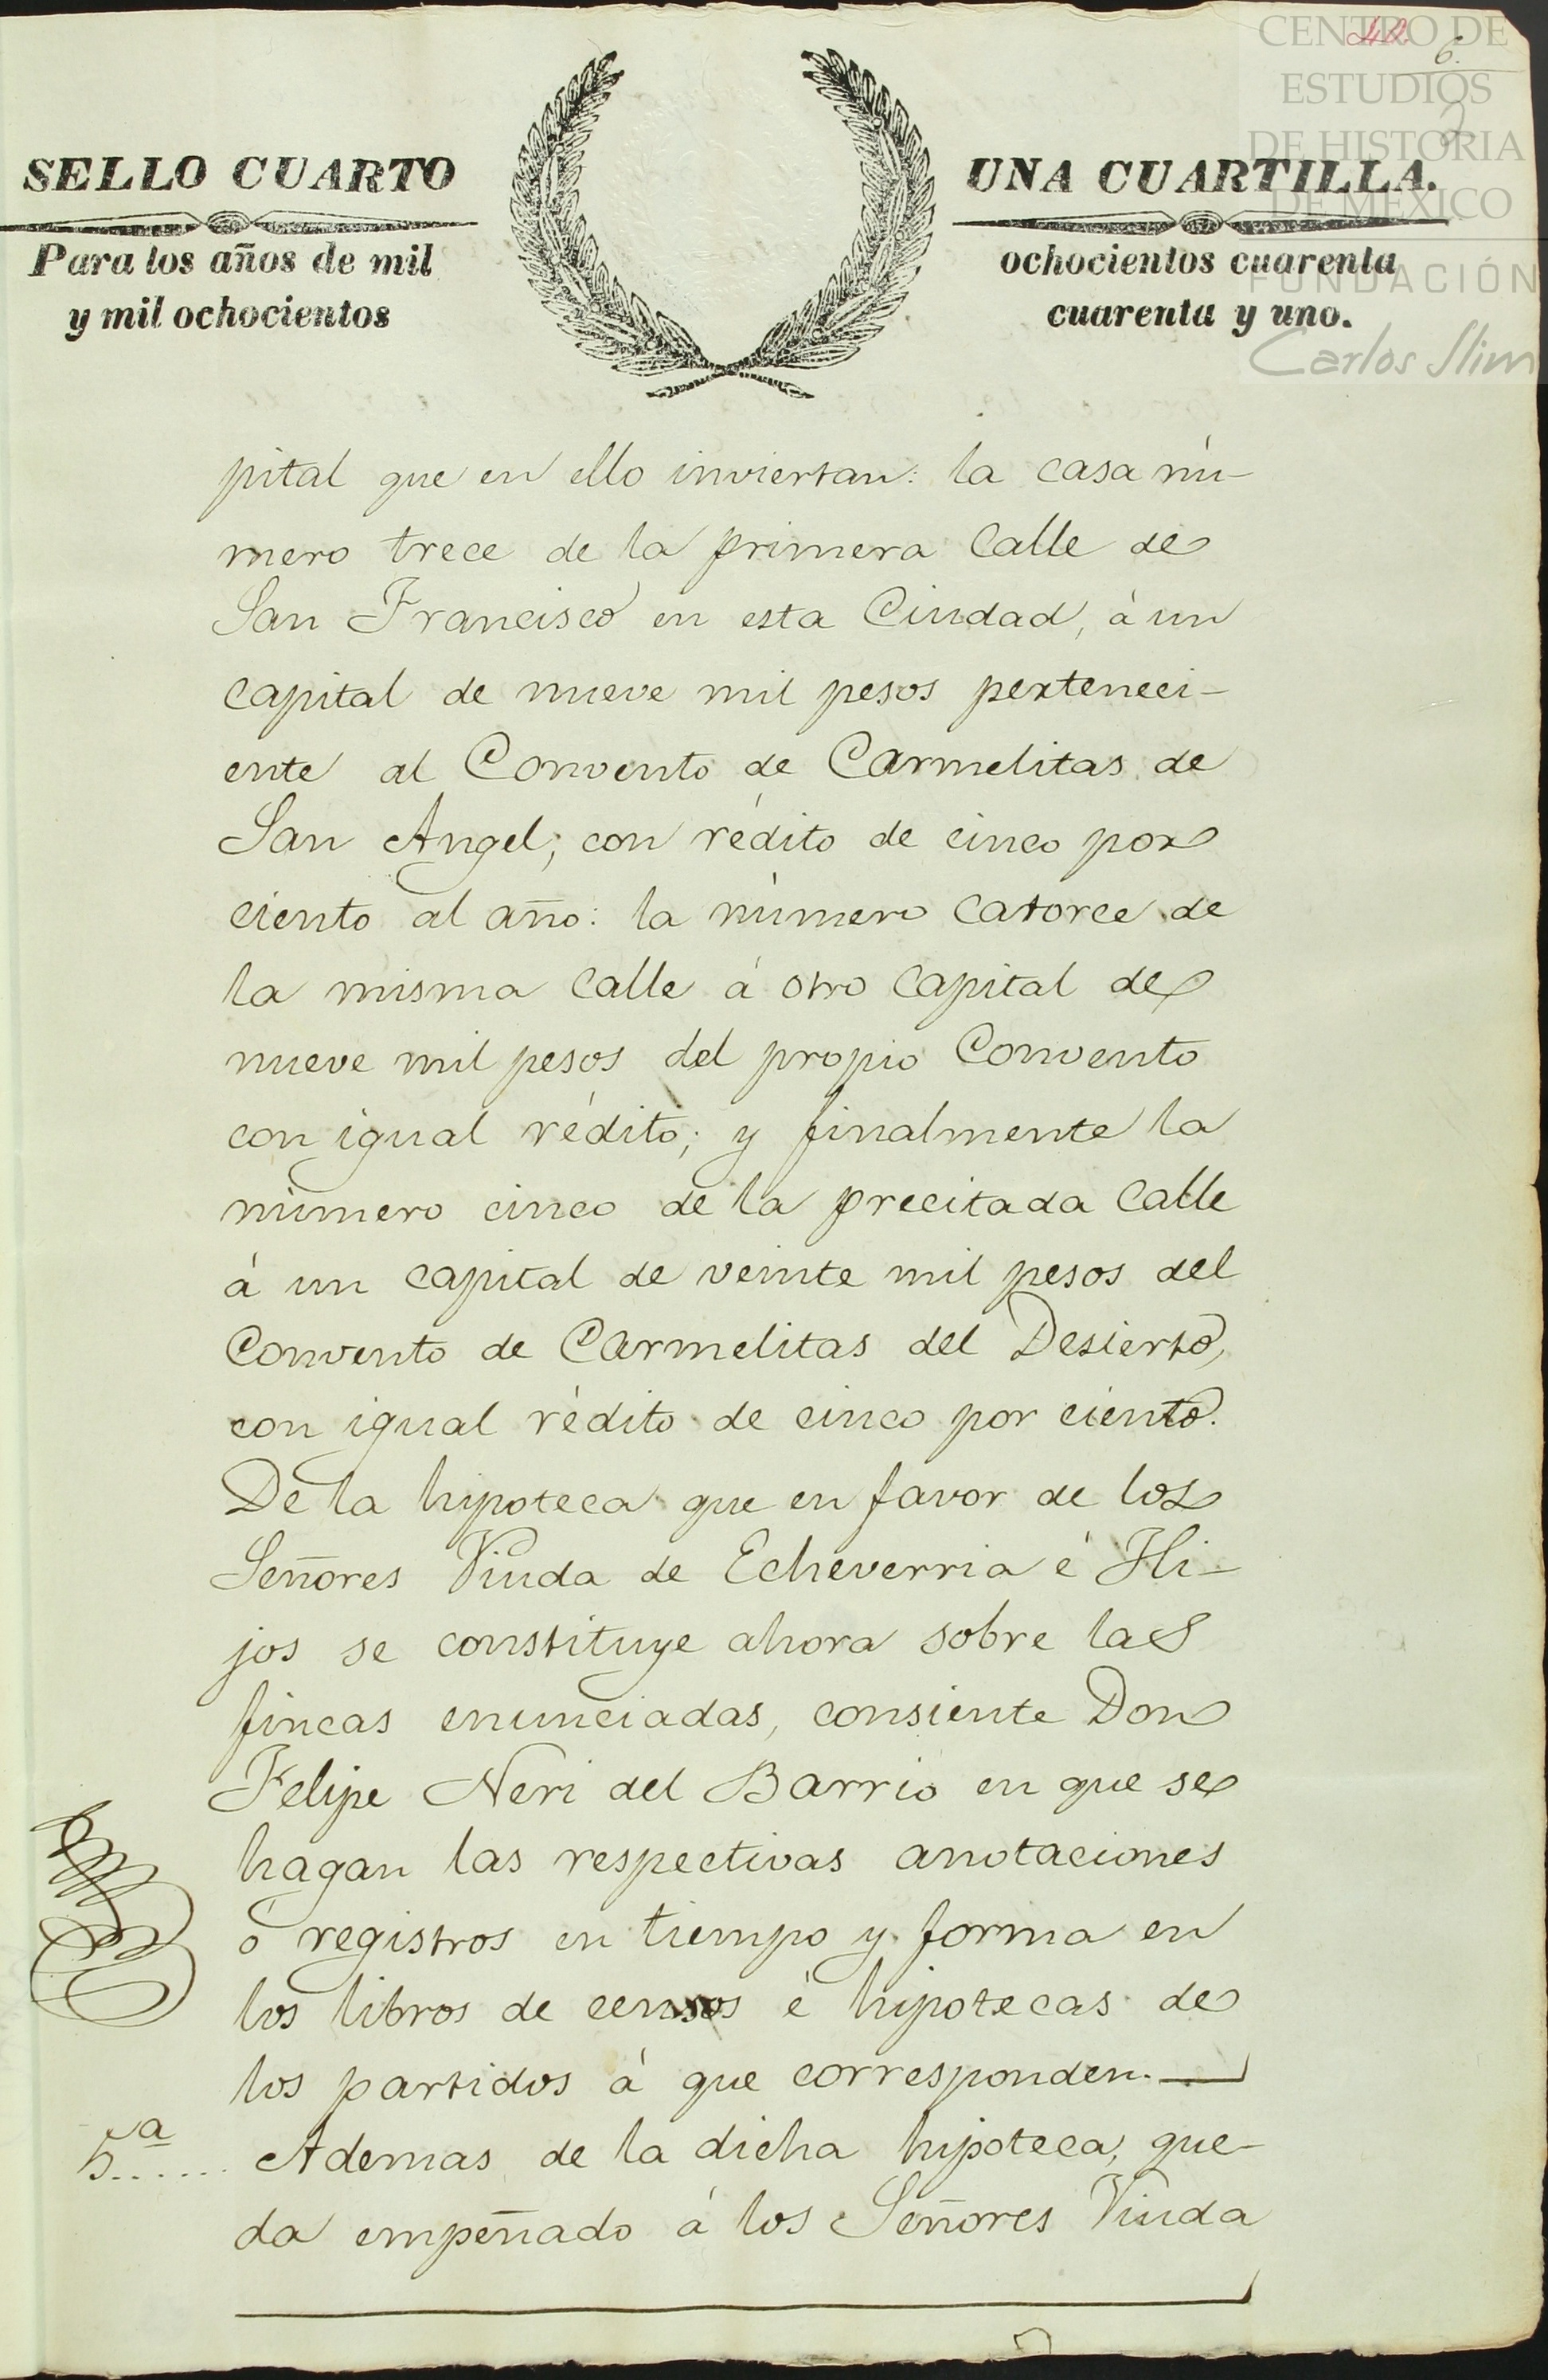 CENTRO DE
ESTUDIOS
DE HISTORIA
DE MÉXICO
FUNDACIÓN
Carlos Slim
6.
SELLO CUARTO
UNA CUARTILLA.
Para los años de mil
ochocientos cuarenta
y mil ochocientos
cuarenta y uno.
pital que en ello inviertan: la casa nú-
mero trece de la primera Calle de
San Francisco en esta Ciudad, á un
capital de nueve mil pesos perteneci-
ente al Convento de Carmelitas de
San Angel; con rédito de cinco por
ciento al año: la número catorce de
la misma Calle á otro capital de
nueve mil pesos del propio Convento
con igual rédito; y finalmente la
número cinco de la precitada Calle
á un capital de veinte mil pesos del
Convento de Carmelitas del Desierto,
con igual rédito de cinco por ciento.
De la hipoteca que en favor de los
Señores Viuda de Echeverria é Hi-
jos se constituye ahora sobre las
fincas enunciadas, consiente Don
Felipe Neri del Barrio en que se
hagan las respectivas anotaciones
ó registros en tiempo y forma en
los libros de censos é hipotecas de
los partidos á que corresponden.
5.ª...... Ademas de la dicha hipoteca, que-
da empeñado á los Señores Viuda